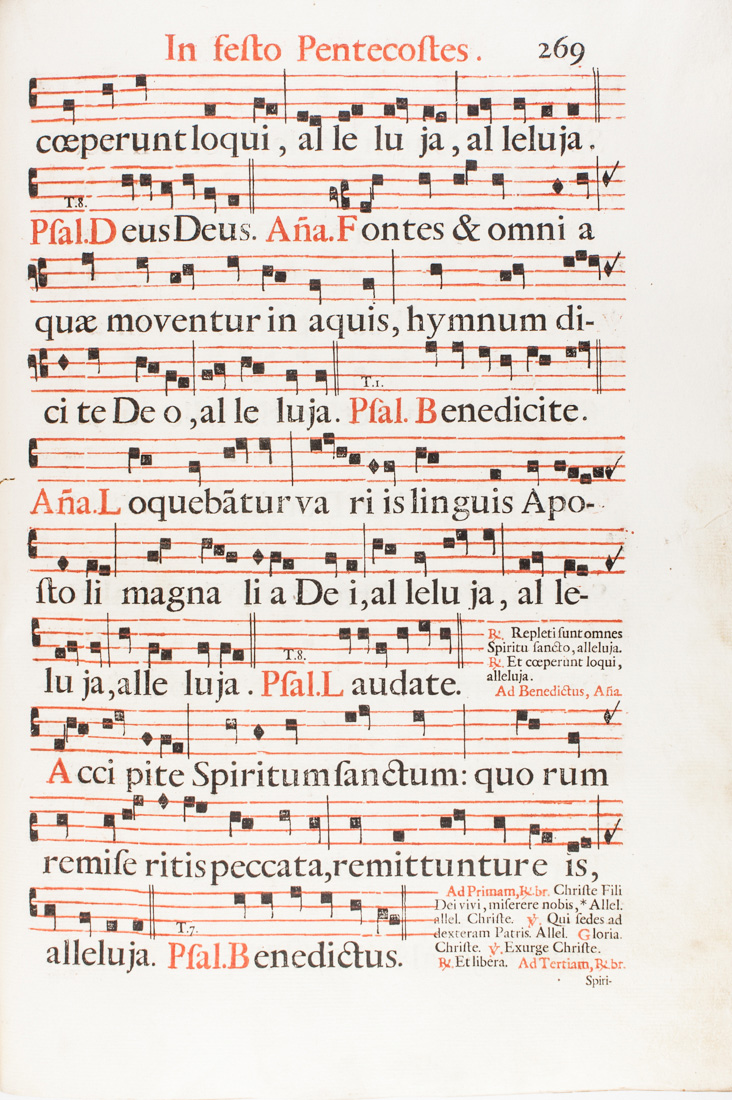 In feſto Pentecoſtes. 269
cœperunt loqui, al le lu ja, al leluja.
T.8.
Pſal. Deus Deus. Aña. Fontes & omni a
quæ moventur in aquis, hymnum di-
T.1.
ci te De o, al le luja. Pſal. Benedicite.
Aña. Loquebãtur va ri is linguis Apo-
ſto li magna li a De i, al lelu ja, al le-
T.8.
lu ja, alle luja. Pſal. Laudate.
℟. Repleti ſunt omnes
Spiritu ſancto, alleluja.
℟. Et cœperunt loqui,
alleluja.
Ad Benedictus, Aña.
Acci pite Spiritum ſanctum: quo rum
remiſe ritis peccata, remittuntur e is,
T.7.
alleluja. Pſal. Benedictus.
Ad Primam, ℟. br. Chriſte Fili
Dei vivi, miſerere nobis, * Allel.
allel. Chriſte. ℣. Qui ſedes ad
dexteram Patris. Allel. Gloria.
Chriſte. ℣. Exurge Chriſte.
℟. Et libera. Ad Tertiam, ℟. br.
Spiri-